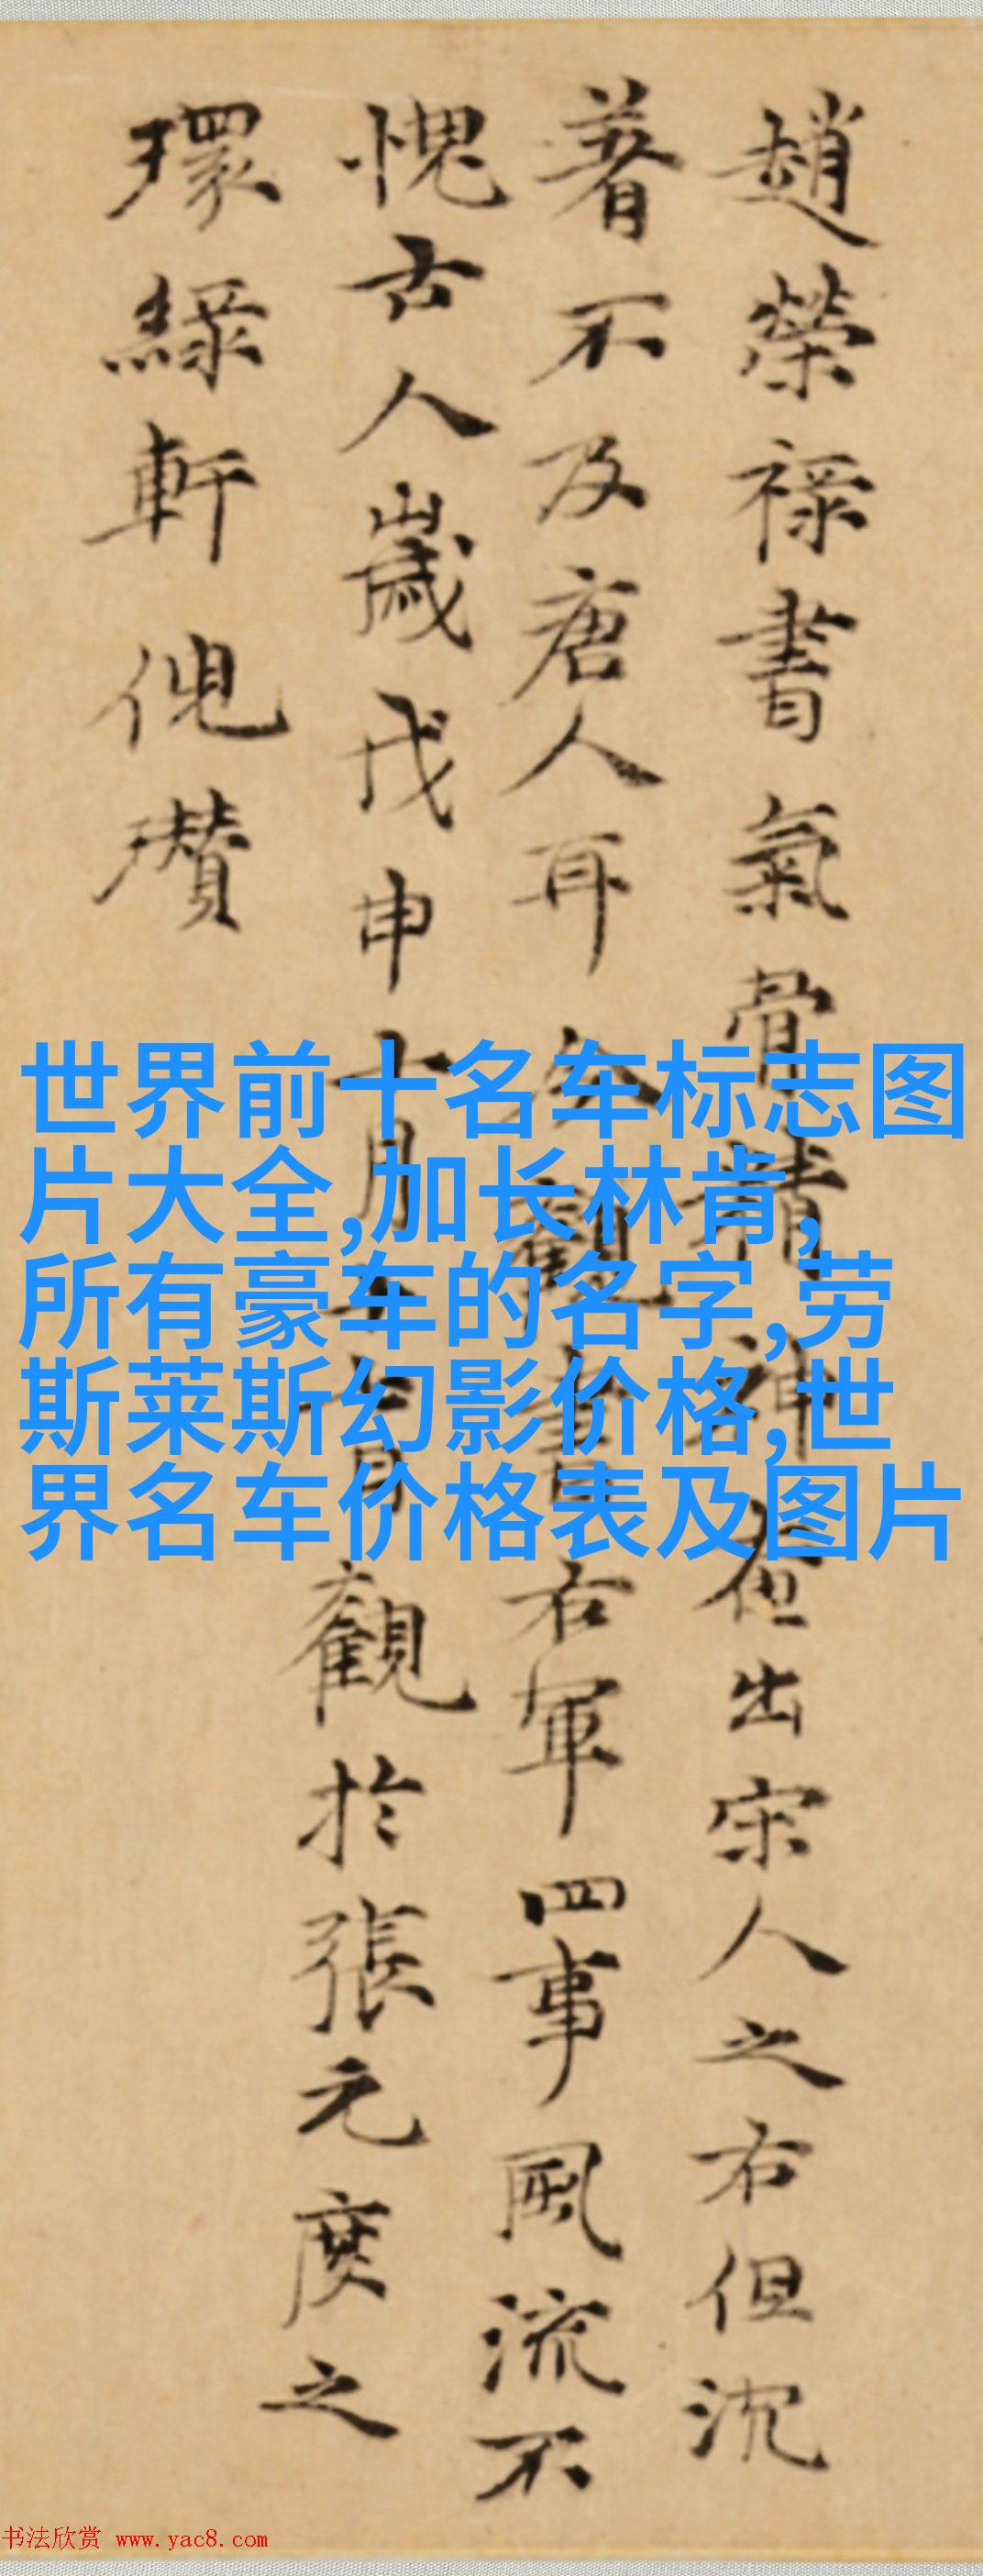 趙榮祿書氣骨精神出宋人之右但沈
著不及唐人耳今觀書右軍四事風流不
愧古人歲戊申十月日觀於張元度之
環綠軒倪瓚
世界前十名车标志图
片大全,加长林肯,
所有豪车的名字,劳
斯莱斯幻影价格,世
界名车价格表及图片
书法欣赏 www.yac8.com